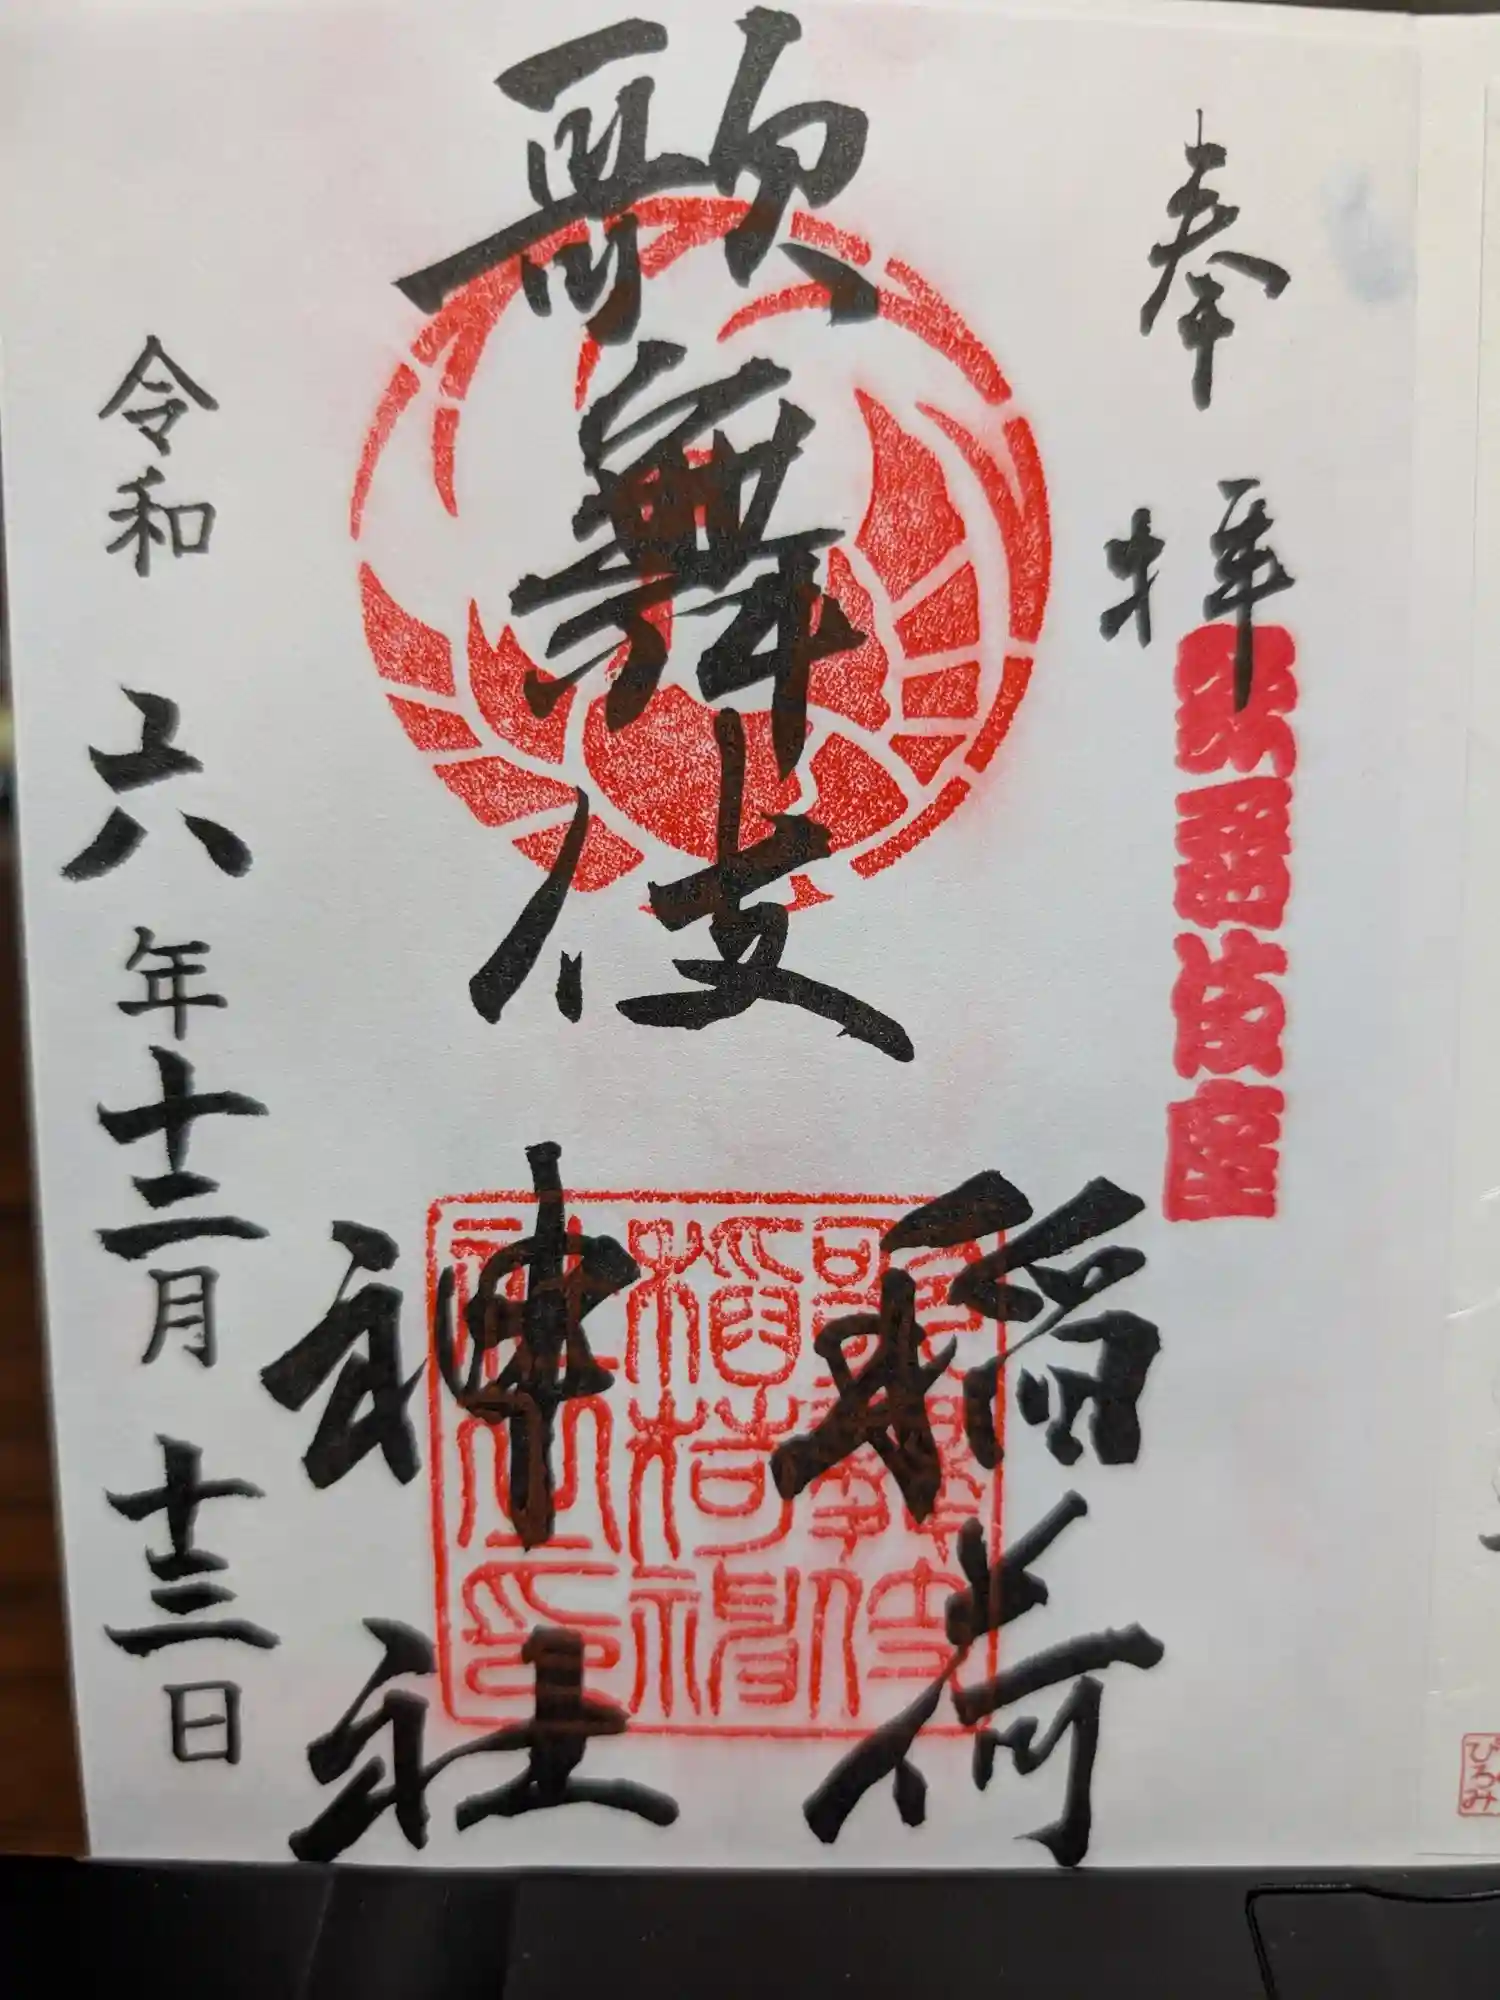 奉拝
歌舞伎座
歌舞伎
稲荷
神社
歌舞伎
稲荷神
社之印
令和六年十二月十三日
ひろみ